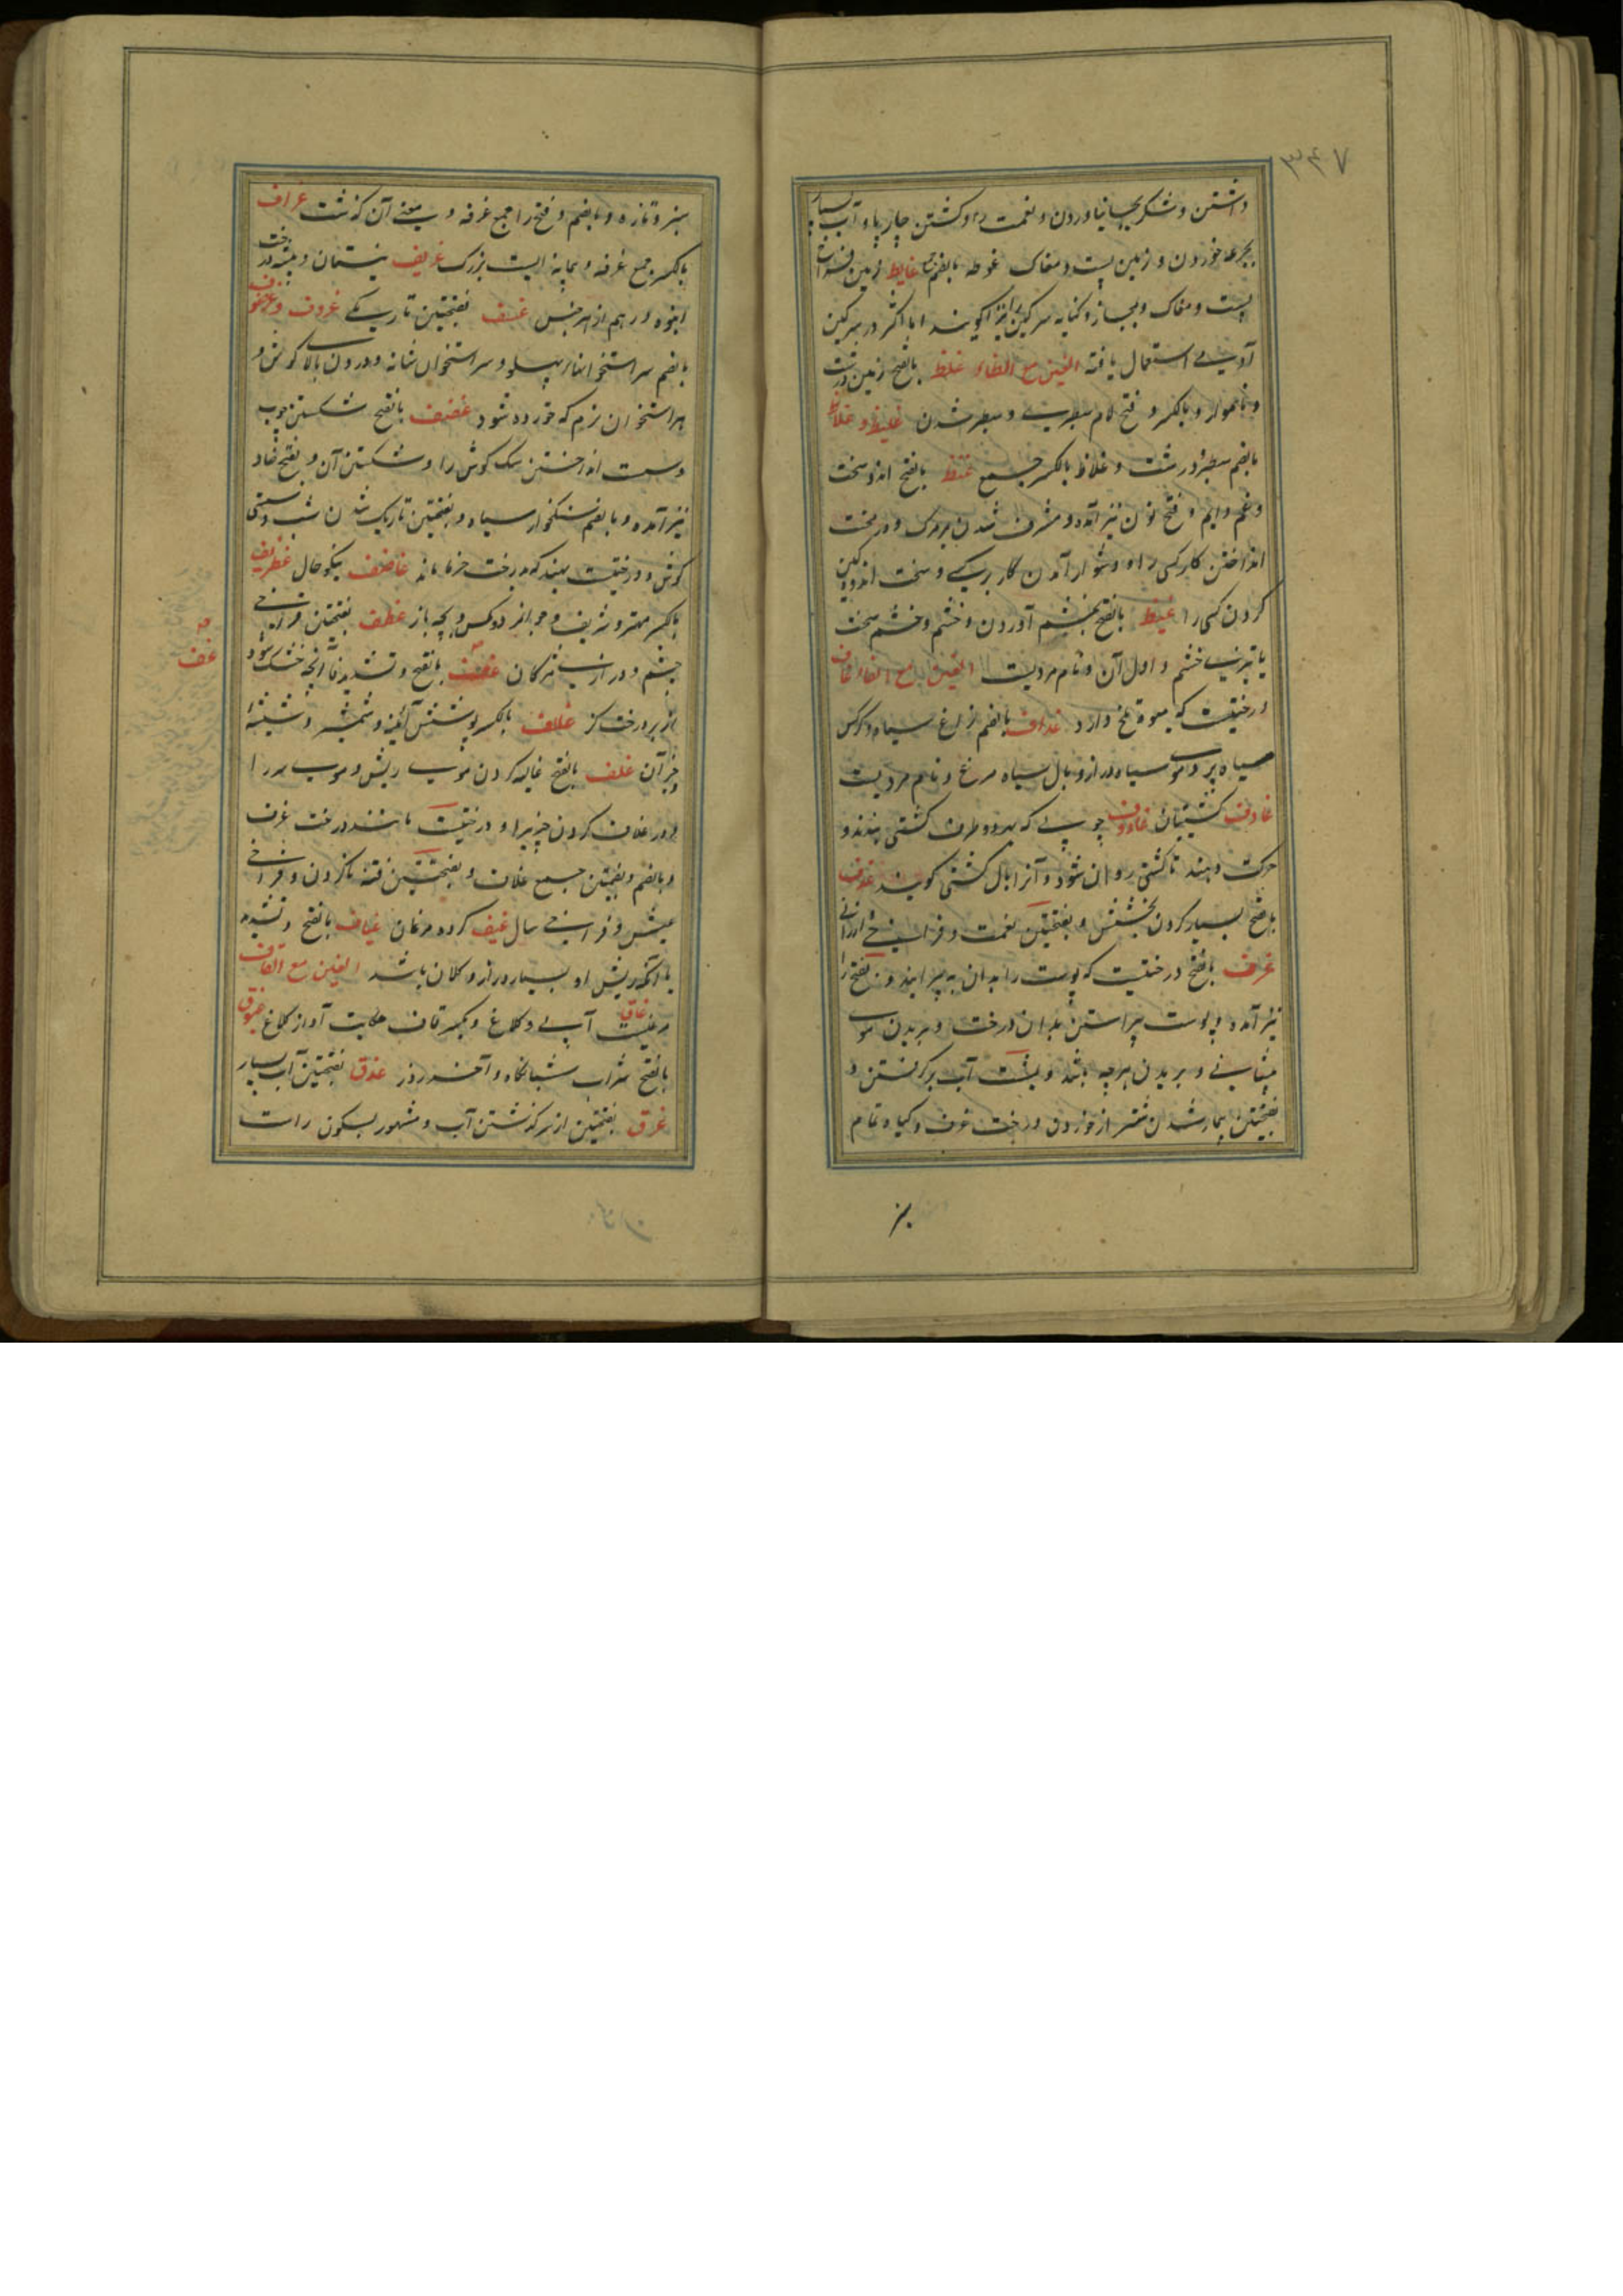 ۳۴۷
داشتن و شکر بجا نیاوردن و نعمت را و کشتن چارپا و آب بسیار
بجرعه خوردن و زمین پست و مغاک غوطه بالضم غایط زمین
پست و مغاک و بمجاز و کنایه سرگین را نیز گویند اما اکثر در سرگین
آدمی استعمال یافته الغین مع الظاء غلظ بالفتح زمین درشت
و ناهموار و بالکسر و فتح لام سطبری و سطبر شدن غلیظ و غلاظ
بالضم سطبر و درشت و غلاظ بالکسر جمع غنظ بالفتح اندوه سخت
و غم دایم و فتح نون نیز آمده و مشرف شدن بر مرگ و در سخت
انداختن کار کسی را و دشوار آمدن کار بر کسی و سخت اندوهگین
کردن کسی را غیظ بالفتح بخشم آوردن و خشم و خشم سخت
یا تیزی خشم و اول آن و نام مردیست الغین مع الفاء غاف
درختیست که میوه تلخ دارد غداف بالضم زاغ سیاه و کرکس
سیاه پر و موی سیاه دراز و بال سیاه مرغ و نام مردیست
غادف کشتیبان غادوف چوبی که بدو طرف کشتی بندند و
حرکت دهند تا کشتی روان شود و آنرا بال کشتی گویند غدف
بالفتح بسیار کردن بخشش و بفتحتین نعمت و فراخی و ارزانی
غرف بالفتح درختیست که پوست را بدان به پیرایند و بفتح را
نیز آمده و پوست پیراستن بدان درخت و بریدن موی
پیشانی و بریدن هرچه باشد و بمشت آب برگرفتن و
بفتحتین بیمار شدن شتر از خوردن درخت غرف و گیاه ثمام
سبز و تازه و بالضم و فتح را جمع غرفه و معنی آن گذشت غراف
بالکسر جمع غرفه و پیمانه ایست بزرگ غریف نیستان و بیشه درخت
انبوه درهم از هر جنس غسف بفتحتین تاریکی غروف و غرضوف
بالضم سر استخوانهای پهلو و سر استخوان شانه و درون بالای گوش و
هر استخوان نرم که خورده شود غضف بالفتح شکستن چوب
و سست انداختن سگ گوش را و شکستن آن و بفتح ضاد
نیز آمده و بالضم سنگخوار سیاه و بفتحتین تاریک شدن شب و سستی
گوش و درختیست بهند که بدرخت خرما ماند غاضف نیکو حال غطریف
بالکسر مهتر و شریف و جوانمرد و مگس و بچه باز غطف بفتحتین فراخی
چشم و درازی مژگان غضف بالفتح و تشدید فا آنچه خشک شود
از برگ درخت تر غلاف بالکسر پوشش آئینه و شمشیر و شیشه
و جز آن غلف بالفتح غالیه کردن موی ریش و موی سر را
و در غلاف کردن چیزیرا و درختیست مانند درخت غرف
و بالضم و بضمتین جمع غلاف و بفتحتین ختنه ناکردن و فراخی
عیش و فراخی سال غیف گروه مرغان غیاف بالفتح و تشدید
یا آنکه ریش او بسیار دراز و کلان باشد الغین مع القاف
غاق مرغیست آبی و کلاغ و بکسر قاف حکایت آواز کلاغ غبوق
بالفتح شراب شبانگاه و آخر روز غدق بفتحتین آب بسیار
غرق بفتحتین از سر گذشتن آب و مشهور بسکون راست
غف